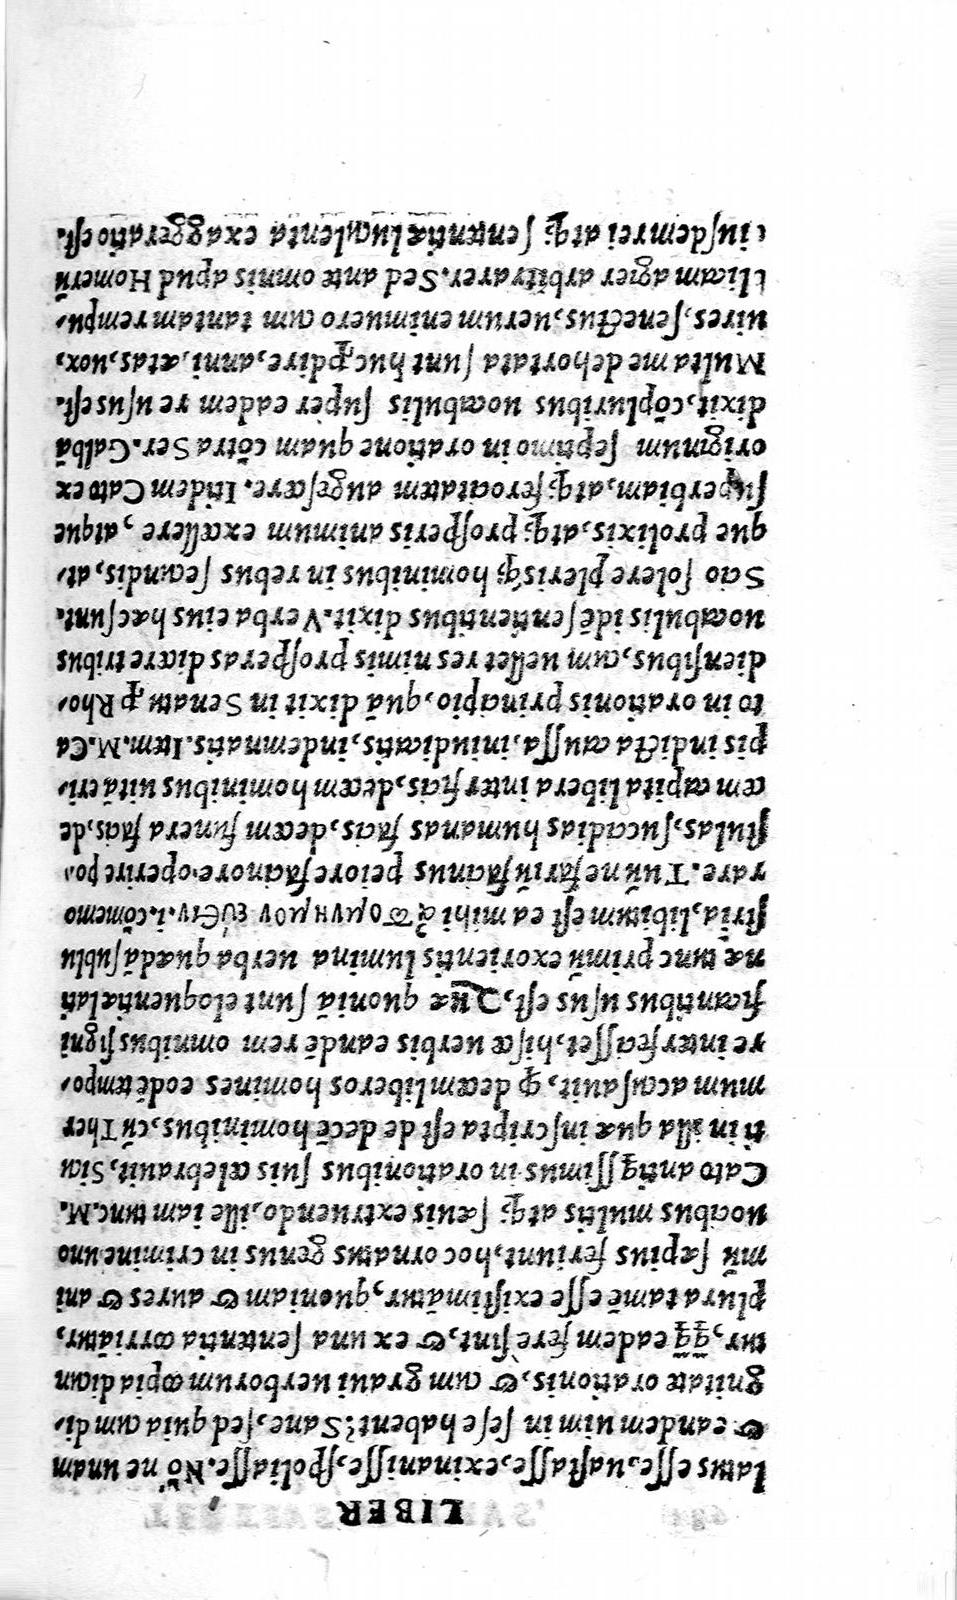 LIBER
latus esse, uastasse, exinanisse, spoliasse. Nō ne unam
& eandem uim in sese habent? Sane, sed quia cum di-
gnitate orationis, & cum graui uerborum copia dicun
tur, ꝗꝗ eadem ferè sint, & ex una sententia corriātur,
plura tamē esse existimātur, quoniam & aures & ani
mū sæpius feriunt, hoc ornatus genus in crimine uno
uocibus multis atq; sæuis extruendo, ille iam tunc. M.
Cato antiqssimus in orationibus suis celebrauit, Sicu
ti in illa quæ inscripta est de decē hominibus, cū Ther
mum accusauit, ꝙ decem liberos homines eodē tempo-
re interfecisset, hisce uerbis eandē rem omnibus signi
ficantibus usus est, Quæ quoniā sunt eloquentiæ lati
næ tunc primū exorientis lumina uerba quædā sublu
stria, libitum est ea mihi ἀπομνημονεύειν. i. cōmemo
rare. Tuū nefariū facinus peiore facinore operire po-
stulas, succidias humanas facis, decem funera facis, de
cem capita libera interficis, decem hominibus uitā eri-
pis indicta caussa, iniudicatis, indemnatis. Item. M. Ca
to in orationis principio, quā dixit in Senatu ꝓ Rho-
diensibus, cum uellet res nimis prosperas dicere tribus
uocabulis idē sentientibus dixit. Verba eius hæc sunt.
Scio solere plerisq; hominibus in rebus secundis, at-
que prolixis, atq; prosperis animum excellere, atque
superbiam, atq; ferocitatem augescere. Itidem Cato ex
originum septimo in oratione quam cōtra Ser. Galbā
dixit, cōpluribus uocabulis super eadem re usus est.
Multa me dehortata sunt huc ꝓdire, anni, ætas, uox,
uires, senectus, uerum enimuero cum tantam rempu-
blicam agier arbitrarer. Sed ante omnis apud Homerū
eiusdem rei atq; sententiæ luculenta exaggeratio est.